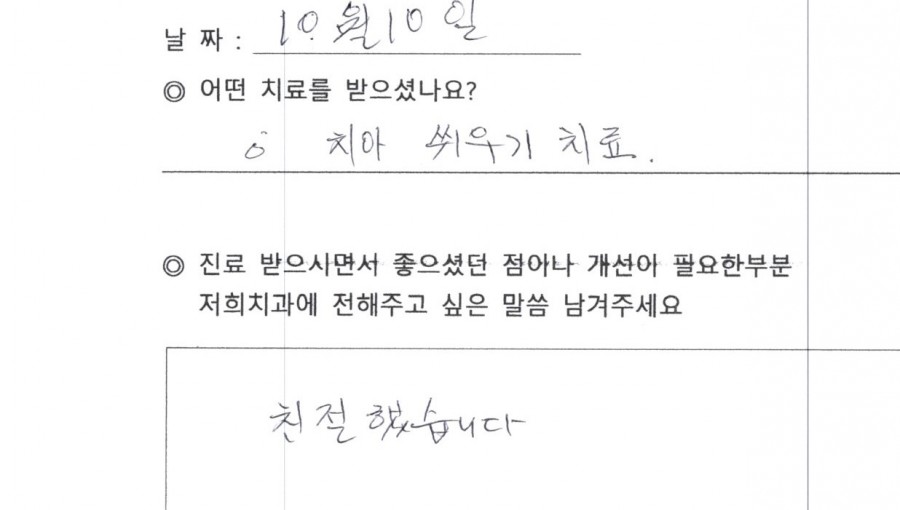 날 짜 : 10월 10일
◎ 어떤 치료를 받으셨나요?
치아 씌우기 치료.
◎ 진료 받으시면서 좋으셨던 점이나 개선이 필요한부분
저희치과에 전해주고 싶은 말씀 남겨주세요
친절했습니다